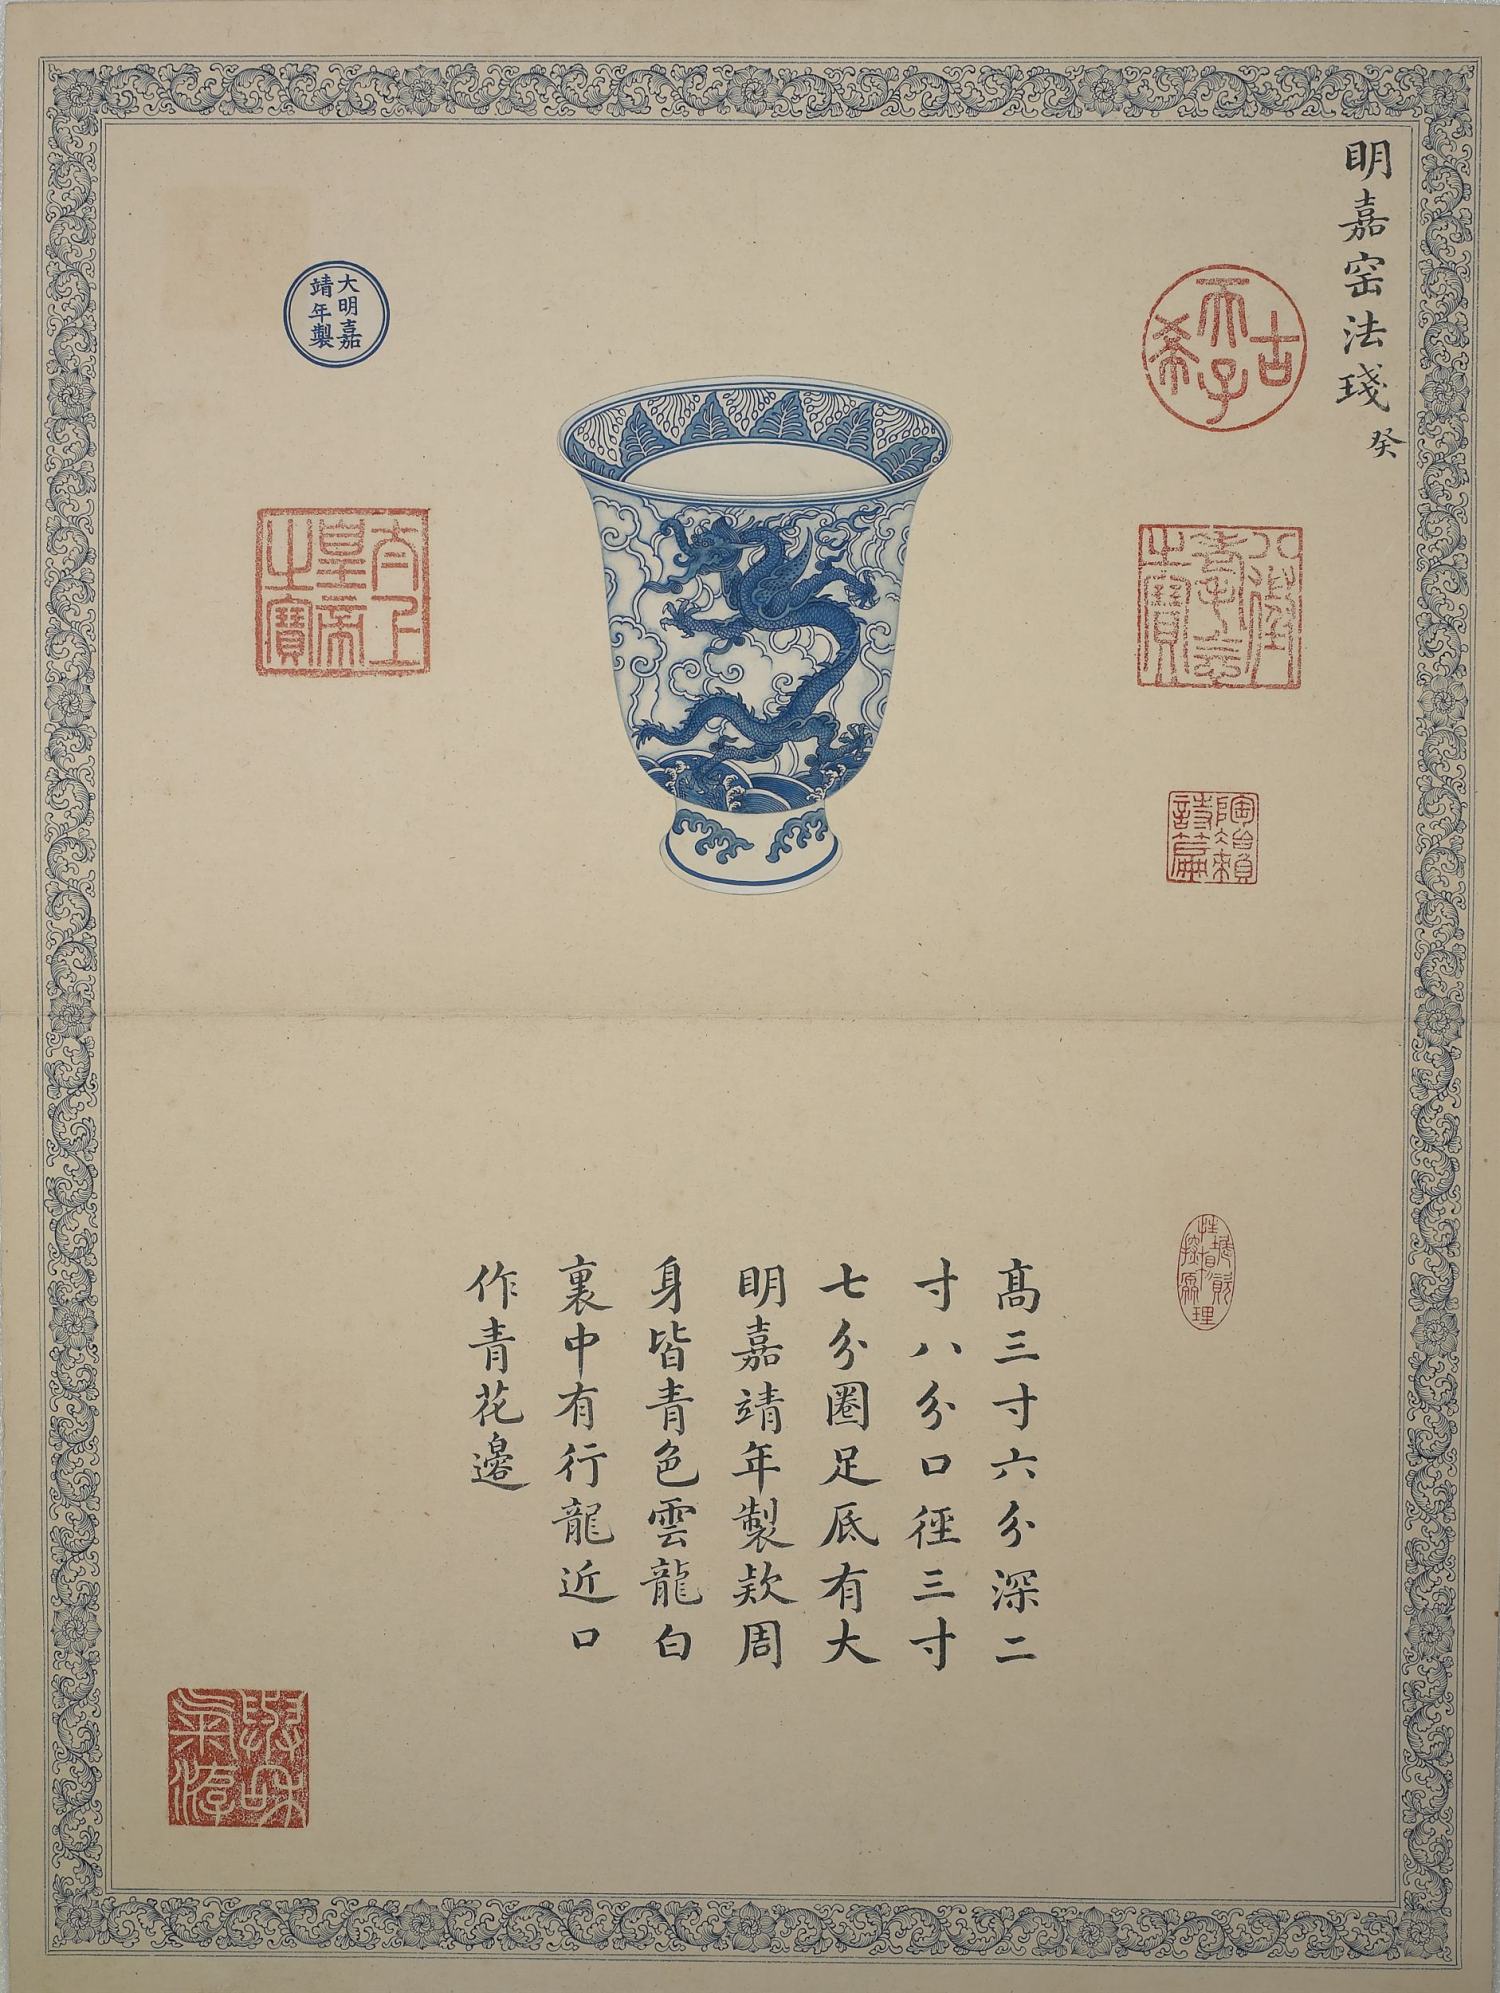 明嘉窑法琖 癸
古希天子
八徵耄念之寶
陶冶賴詩篇
大明嘉
靖年製
太上皇帝之寶
高三寸六分深二
寸八分口徑三寸
七分圈足底有大
明嘉靖年製款周
身皆青色雲龍白
裏中有行龍近口
作青花邊